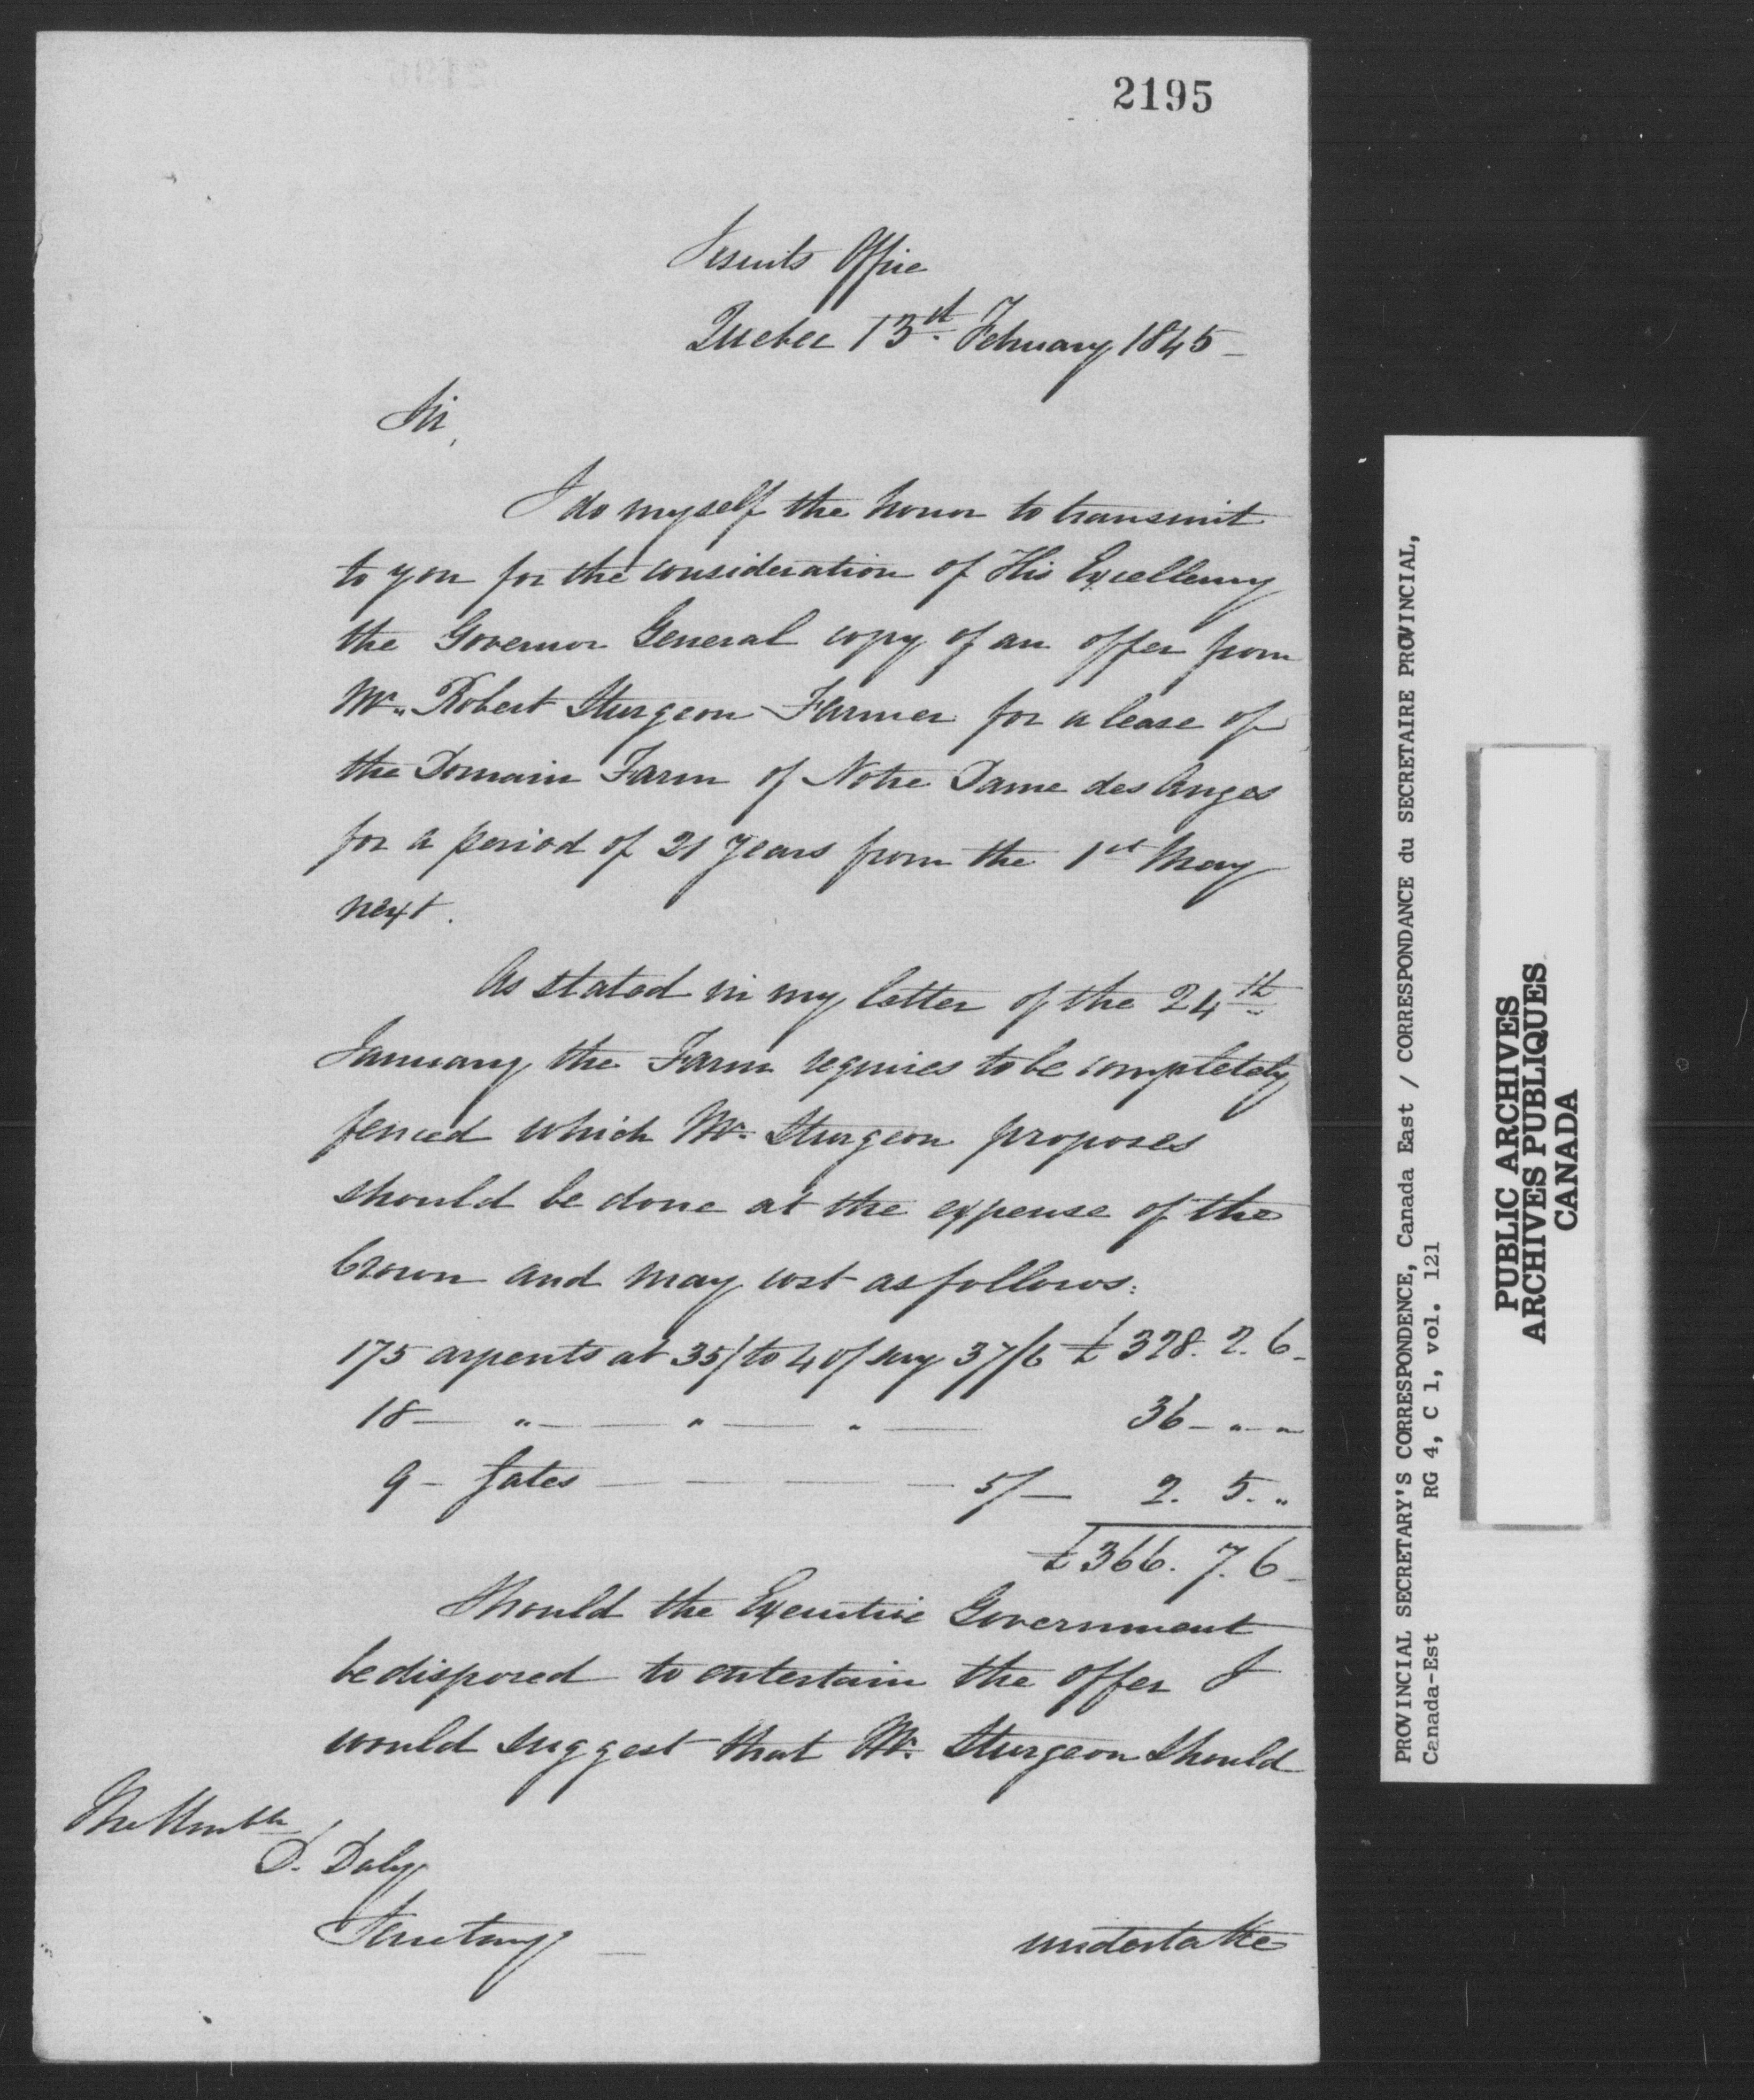 2195
Jesuits Office
Quebec 13th February 1845 -
Sir,
I do myself the honor to transmit
to you for the consideration of His Excellency
the Governor General copy of an offer from
Mr. Robert Sturgeon Farmer for a lease of
the Domain Farm of Notre Dame des Anges
for a period of 21 years from the 1st May
next.
As stated in my letter of the 24th
January the Farm requires to be completely
fenced which Mr. Sturgeon proposes
should be done at the expense of the
Crown and may cost as follows:
175 arpents at 35/ to 40/ say 37/6 £328. 2. 6 -
18 — " — " — " — 36 - " - "
9 - Gates — — — — 5/ — 2. 5. "
£366. 7. 6 -
Should the Executive Government
be disposed to entertain the offer I
would suggest that Mr. Sturgeon should
The Honble
D. Daly
Secretary —
undertake
PROVINCIAL SECRETARY'S CORRESPONDENCE, Canada East / CORRESPONDANCE du SECRETAIRE PROVINCIAL,
Canada-Est RG 4, C 1, vol. 121
PUBLIC ARCHIVES
ARCHIVES PUBLIQUES
CANADA